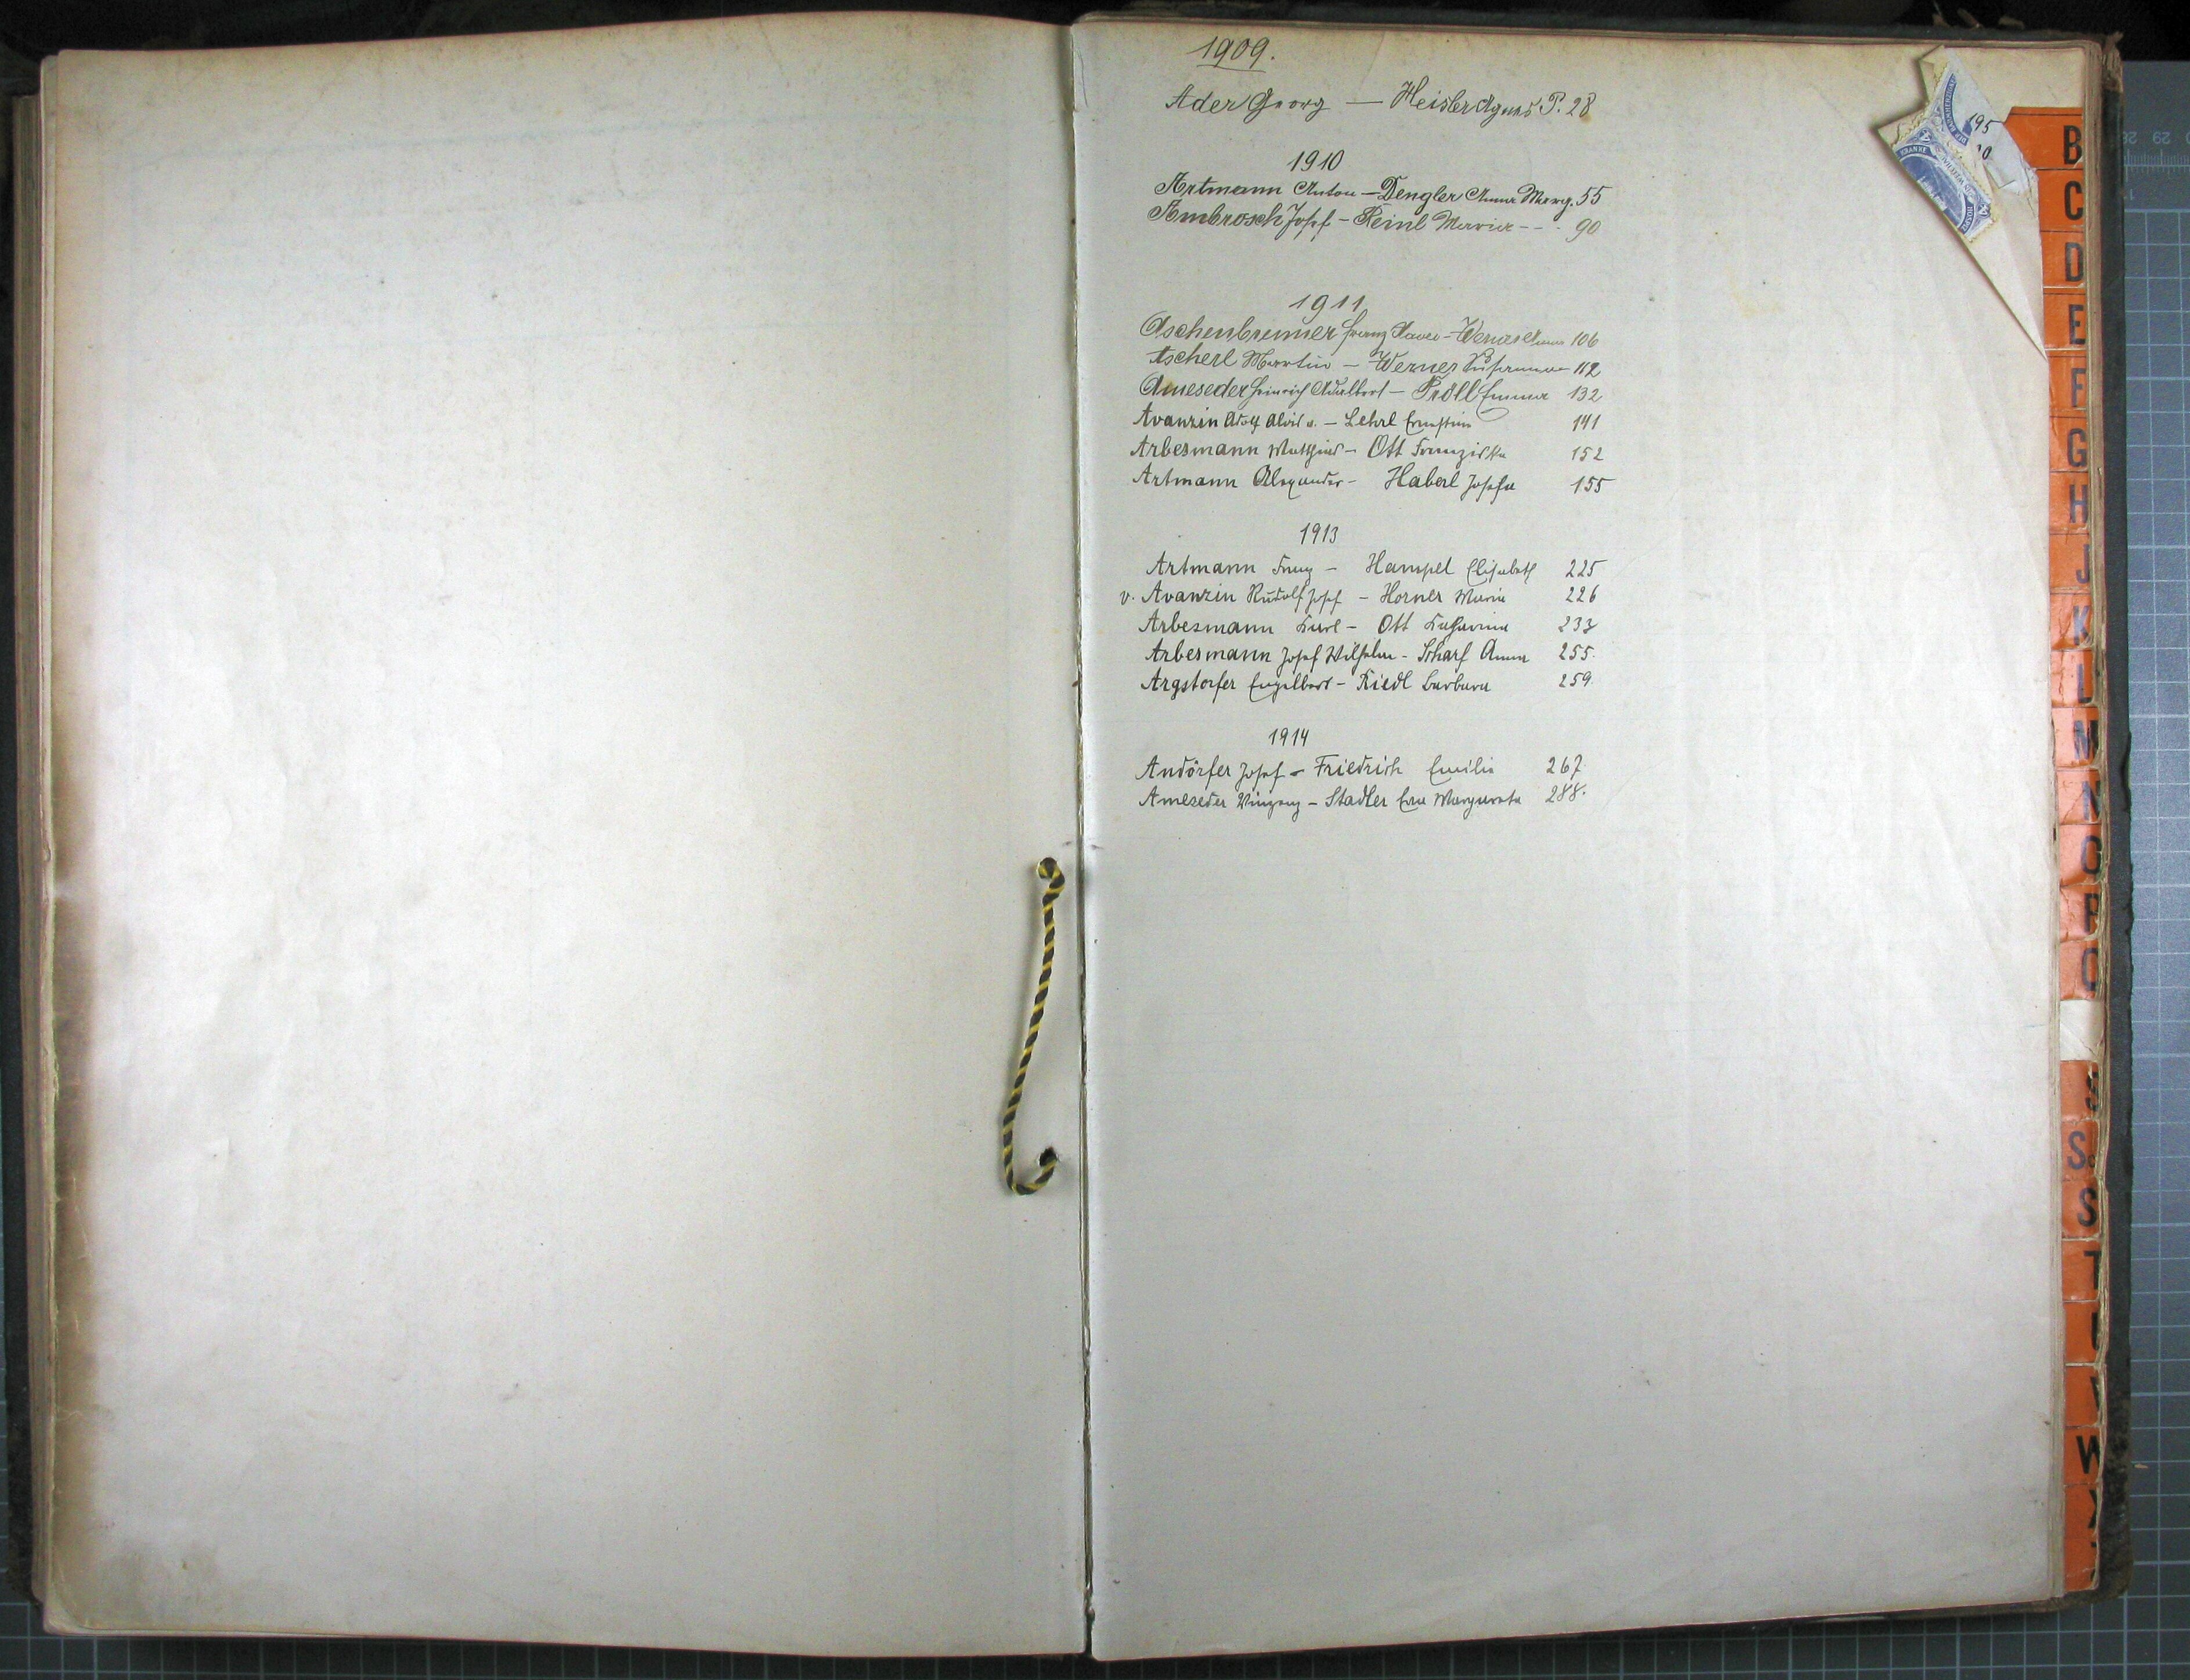 1909.
Ader Georg — Heisler Agnes P. 28
1910
Artmann Anton – Dengler Anna Marg. 55
Ambrosch Josef – Reinl Maria - - - 90
1911
Aschenbrenner Franz Xaver – Anna 106
Ascherl Martin – Werner 112
Ameseder Heinrich Adalbert – Pröll Emma 132
Avanzin Adolf Alois v. – Lehrl Ernestine 141
Arbesmann Mathias – Ott Franziska 152
Artmann Alexander – Haberl Josefa 155
1913
Artmann Franz – Hampel Elisabeth 225
v. Avanzin Rudolf Josef – Horner Maria 226
Arbesmann Karl – Ott Katharina 233
Arbesmann Josef Wilhelm – Scharf Anna 255.
Argstorfer Engelbert – Riedl Barbara 259.
1914
Andörfer Josef – Friedrich Emilie 267.
Ameseder Vinzenz – Stadler Eva Margareta 288.
195
B
C
D
E
F
G
H
J
K
L
M
N
O
P
Q
S
S
S
T
U
V
W
X